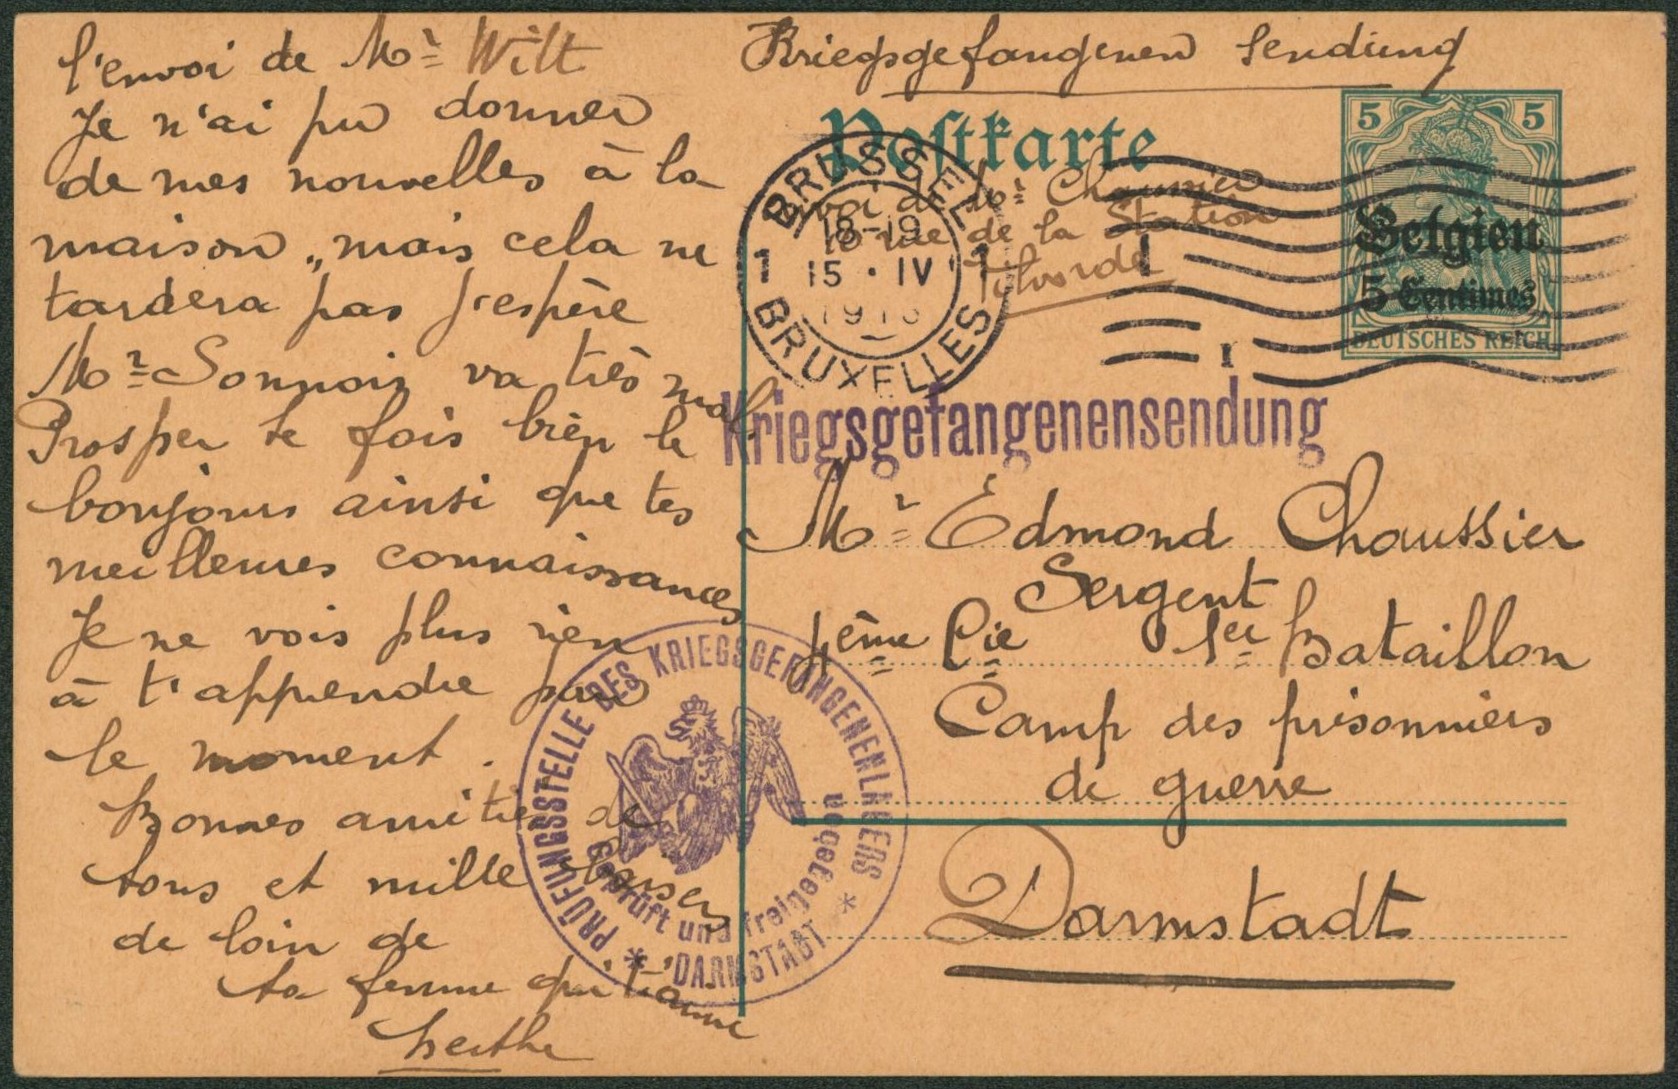 l'envoi de Mr Wilt
Je n'ai pu donner
de mes nouvelles à la
maison „ mais cela ne
tardera pas j'espère
Mr Sonnois va très mal.
Prosper te fois bien le
bonjours ainsi que tes
meillenres connaissances
Je ne vois plus rien
à t'apprendre pour
le moment.
Bonnes amitiés de
tous et mille baisers
de loin de
ta femme qui t'aime
Berthe
Kriegsgefangenen Sendung
Postkarte
5 5
Belgien
5 Centimes
DEUTSCHES REICH
BRUSSEL
18-19
1 15 · IV 1
BRUXELLES
I
de Mr
rue de la Station
Vilvorde
Kriegsgefangenensendung
Mr Edmond Chaussier
Sergent
Cie 1er Bataillon
Camp des prisonniers
de guerre
Darmstadt
PRÜFUNGSSTELLE DES KRIEGSGEFANGENENLAGERS
* DARMSTADT *
Geprüft und freigegeben